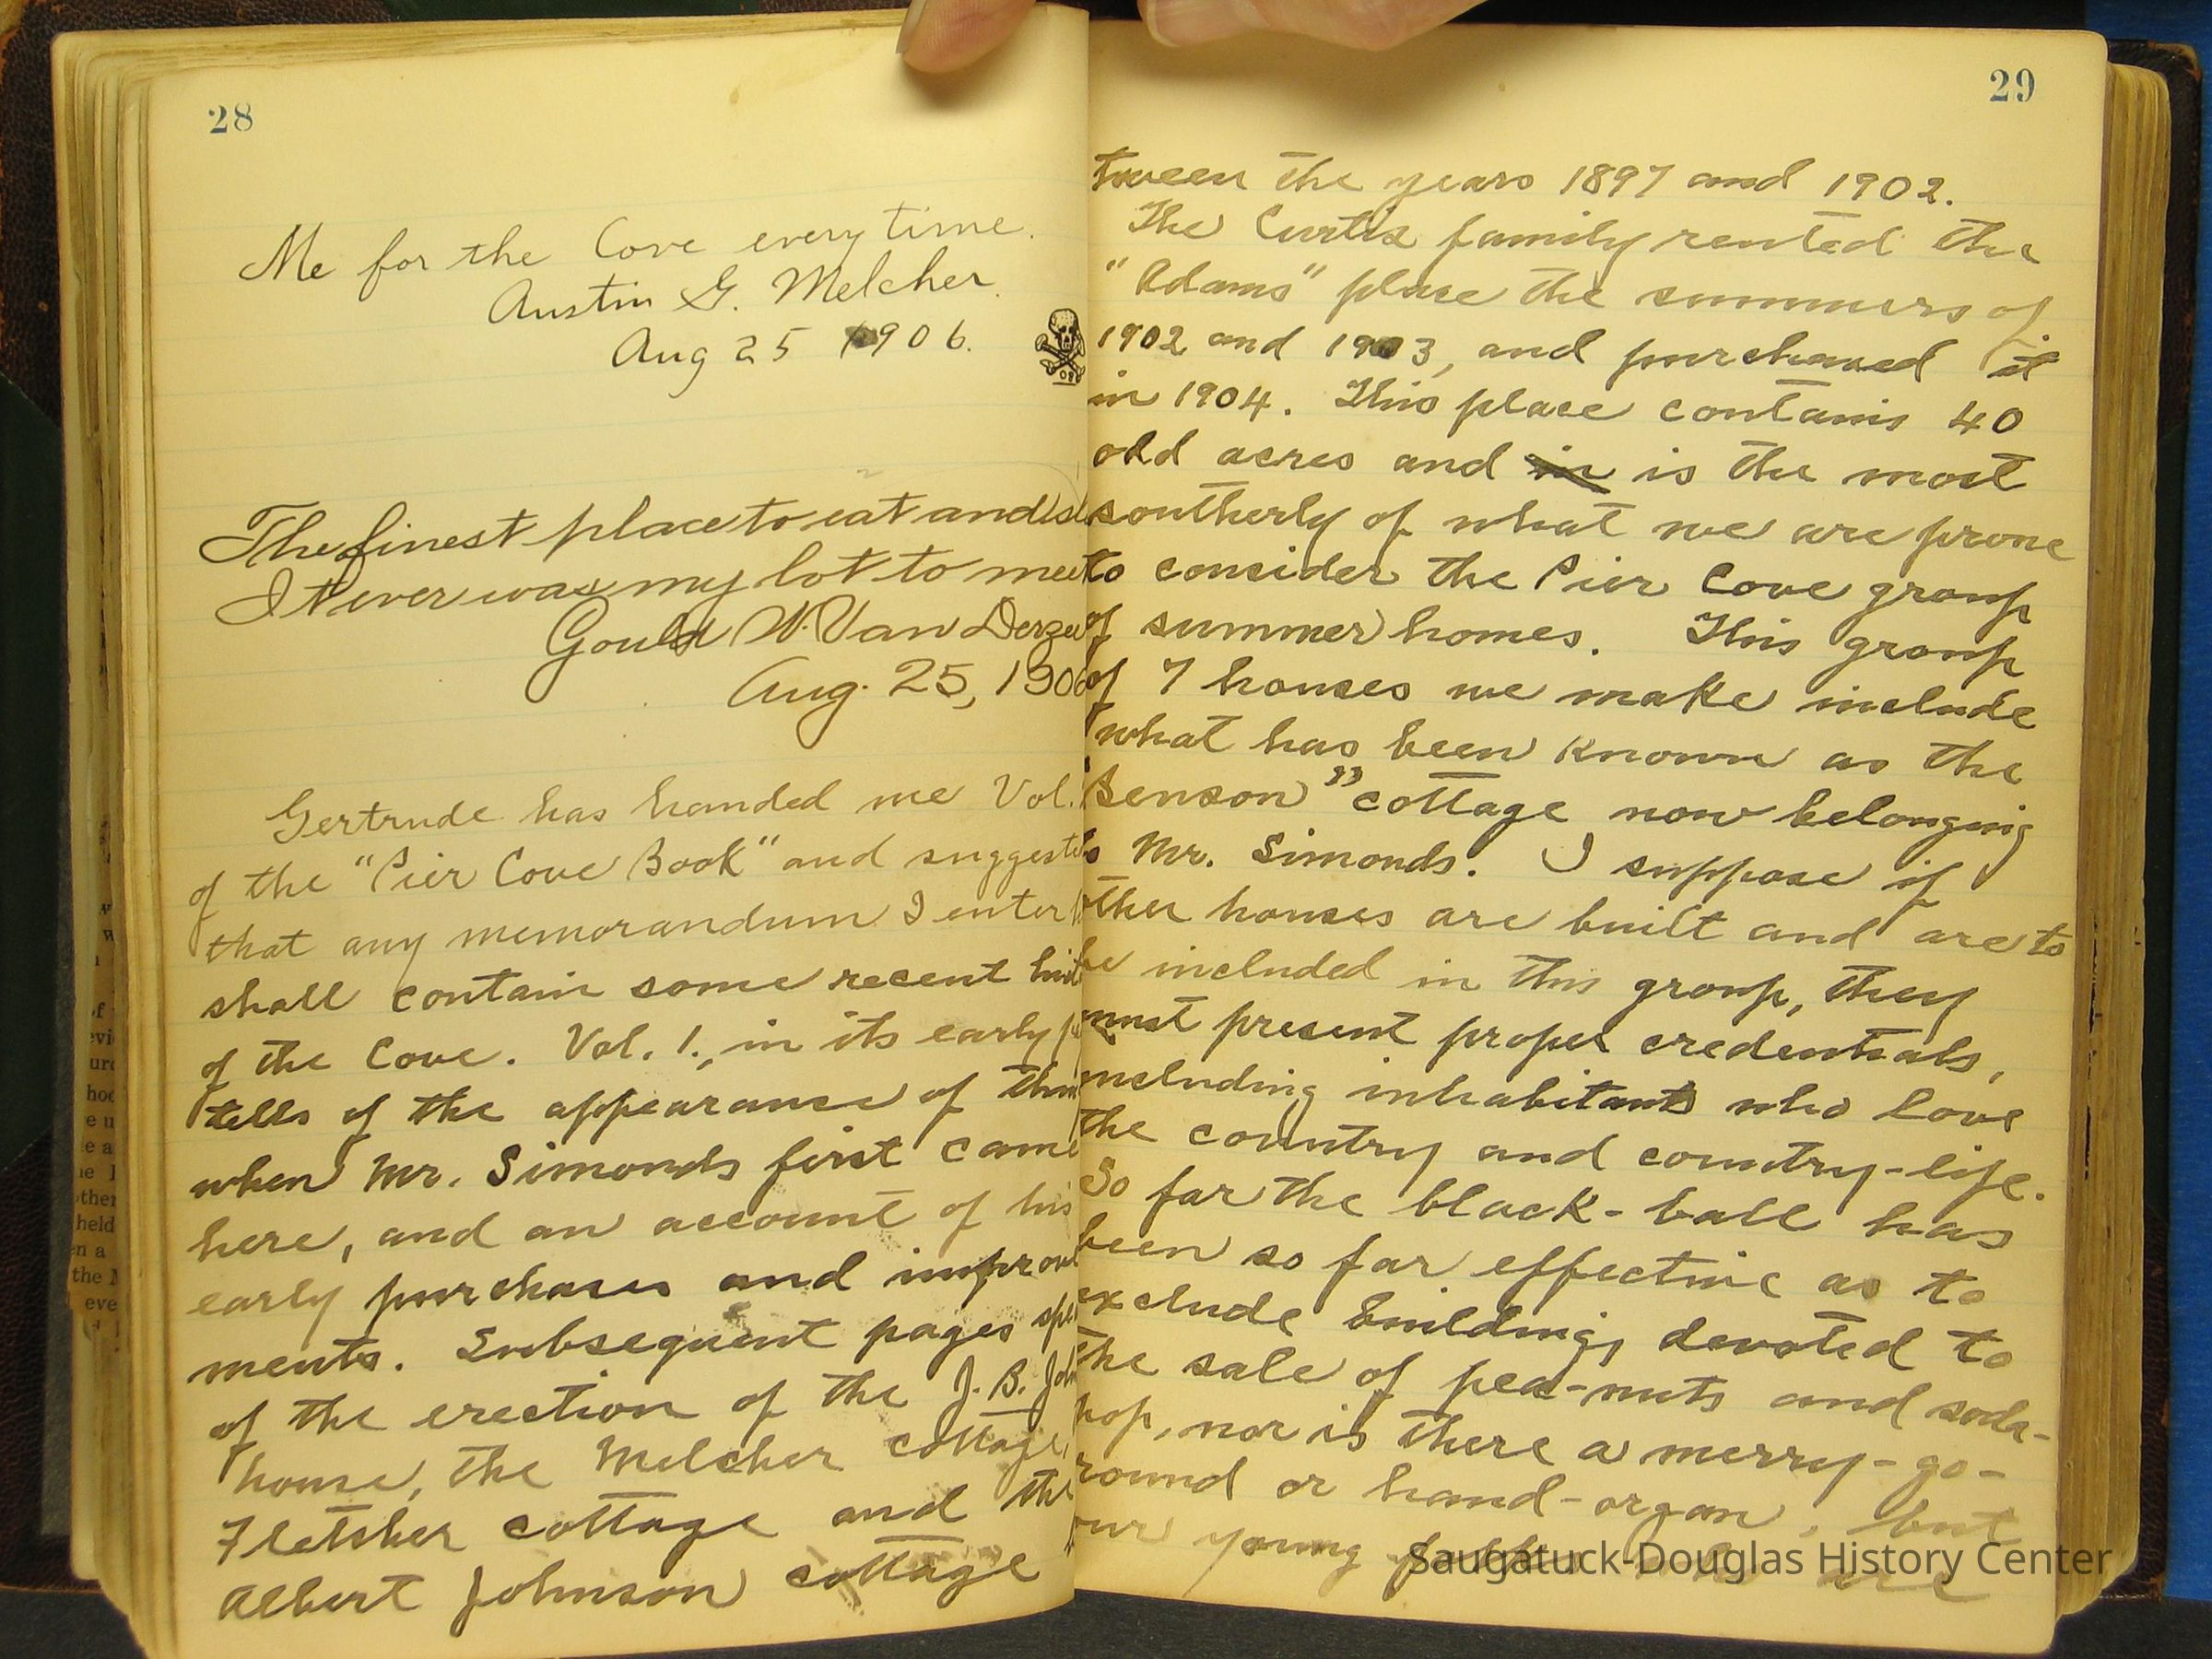 28
Me for the Cove every time.
Austin G. Melcher.
Aug 25 1906.
The finest place to eat and
It ever was my lot to meet
Gould W. Van Derzee
Aug. 25, 1906
Gertrude has handed me Vol.
of the "Pier Cove Book" and suggests
that any memorandum I enter
shall contain some recent
of the Cove. Vol. 1., in its early
tells of the appearance of
when Mr. Simonds first came
here, and an account of his
early purchases and improve
ments. Subsequent pages
of the erection of the J. B.
house, the Melcher cottage,
Fletcher cottage and the
Albert Johnson cottage
29
tween the years 1897 and 1902.
The Curtis family rented the
"Adams" place the summers of
1902 and 1903, and purchased it
in 1904. This place contains 40
odd acres and in is the most
southerly of what we are prone
to consider the Pier Cove group
of summer homes. This group
of 7 houses we make include
what has been known as the
Benson" cottage now belonging
to Mr. Simonds. I suppose if
other houses are built and are to
be included in this group, they
must present proper credentials,
including inhabitants who love
the country and country-life.
So far the black-ball has
been so far effective as to
exclude buildings devoted to
the sale of pea-nuts and soda-
pop, nor is there a merry-go-
round or hand-organ, but
our young are
Saugatuck-Douglas History Center